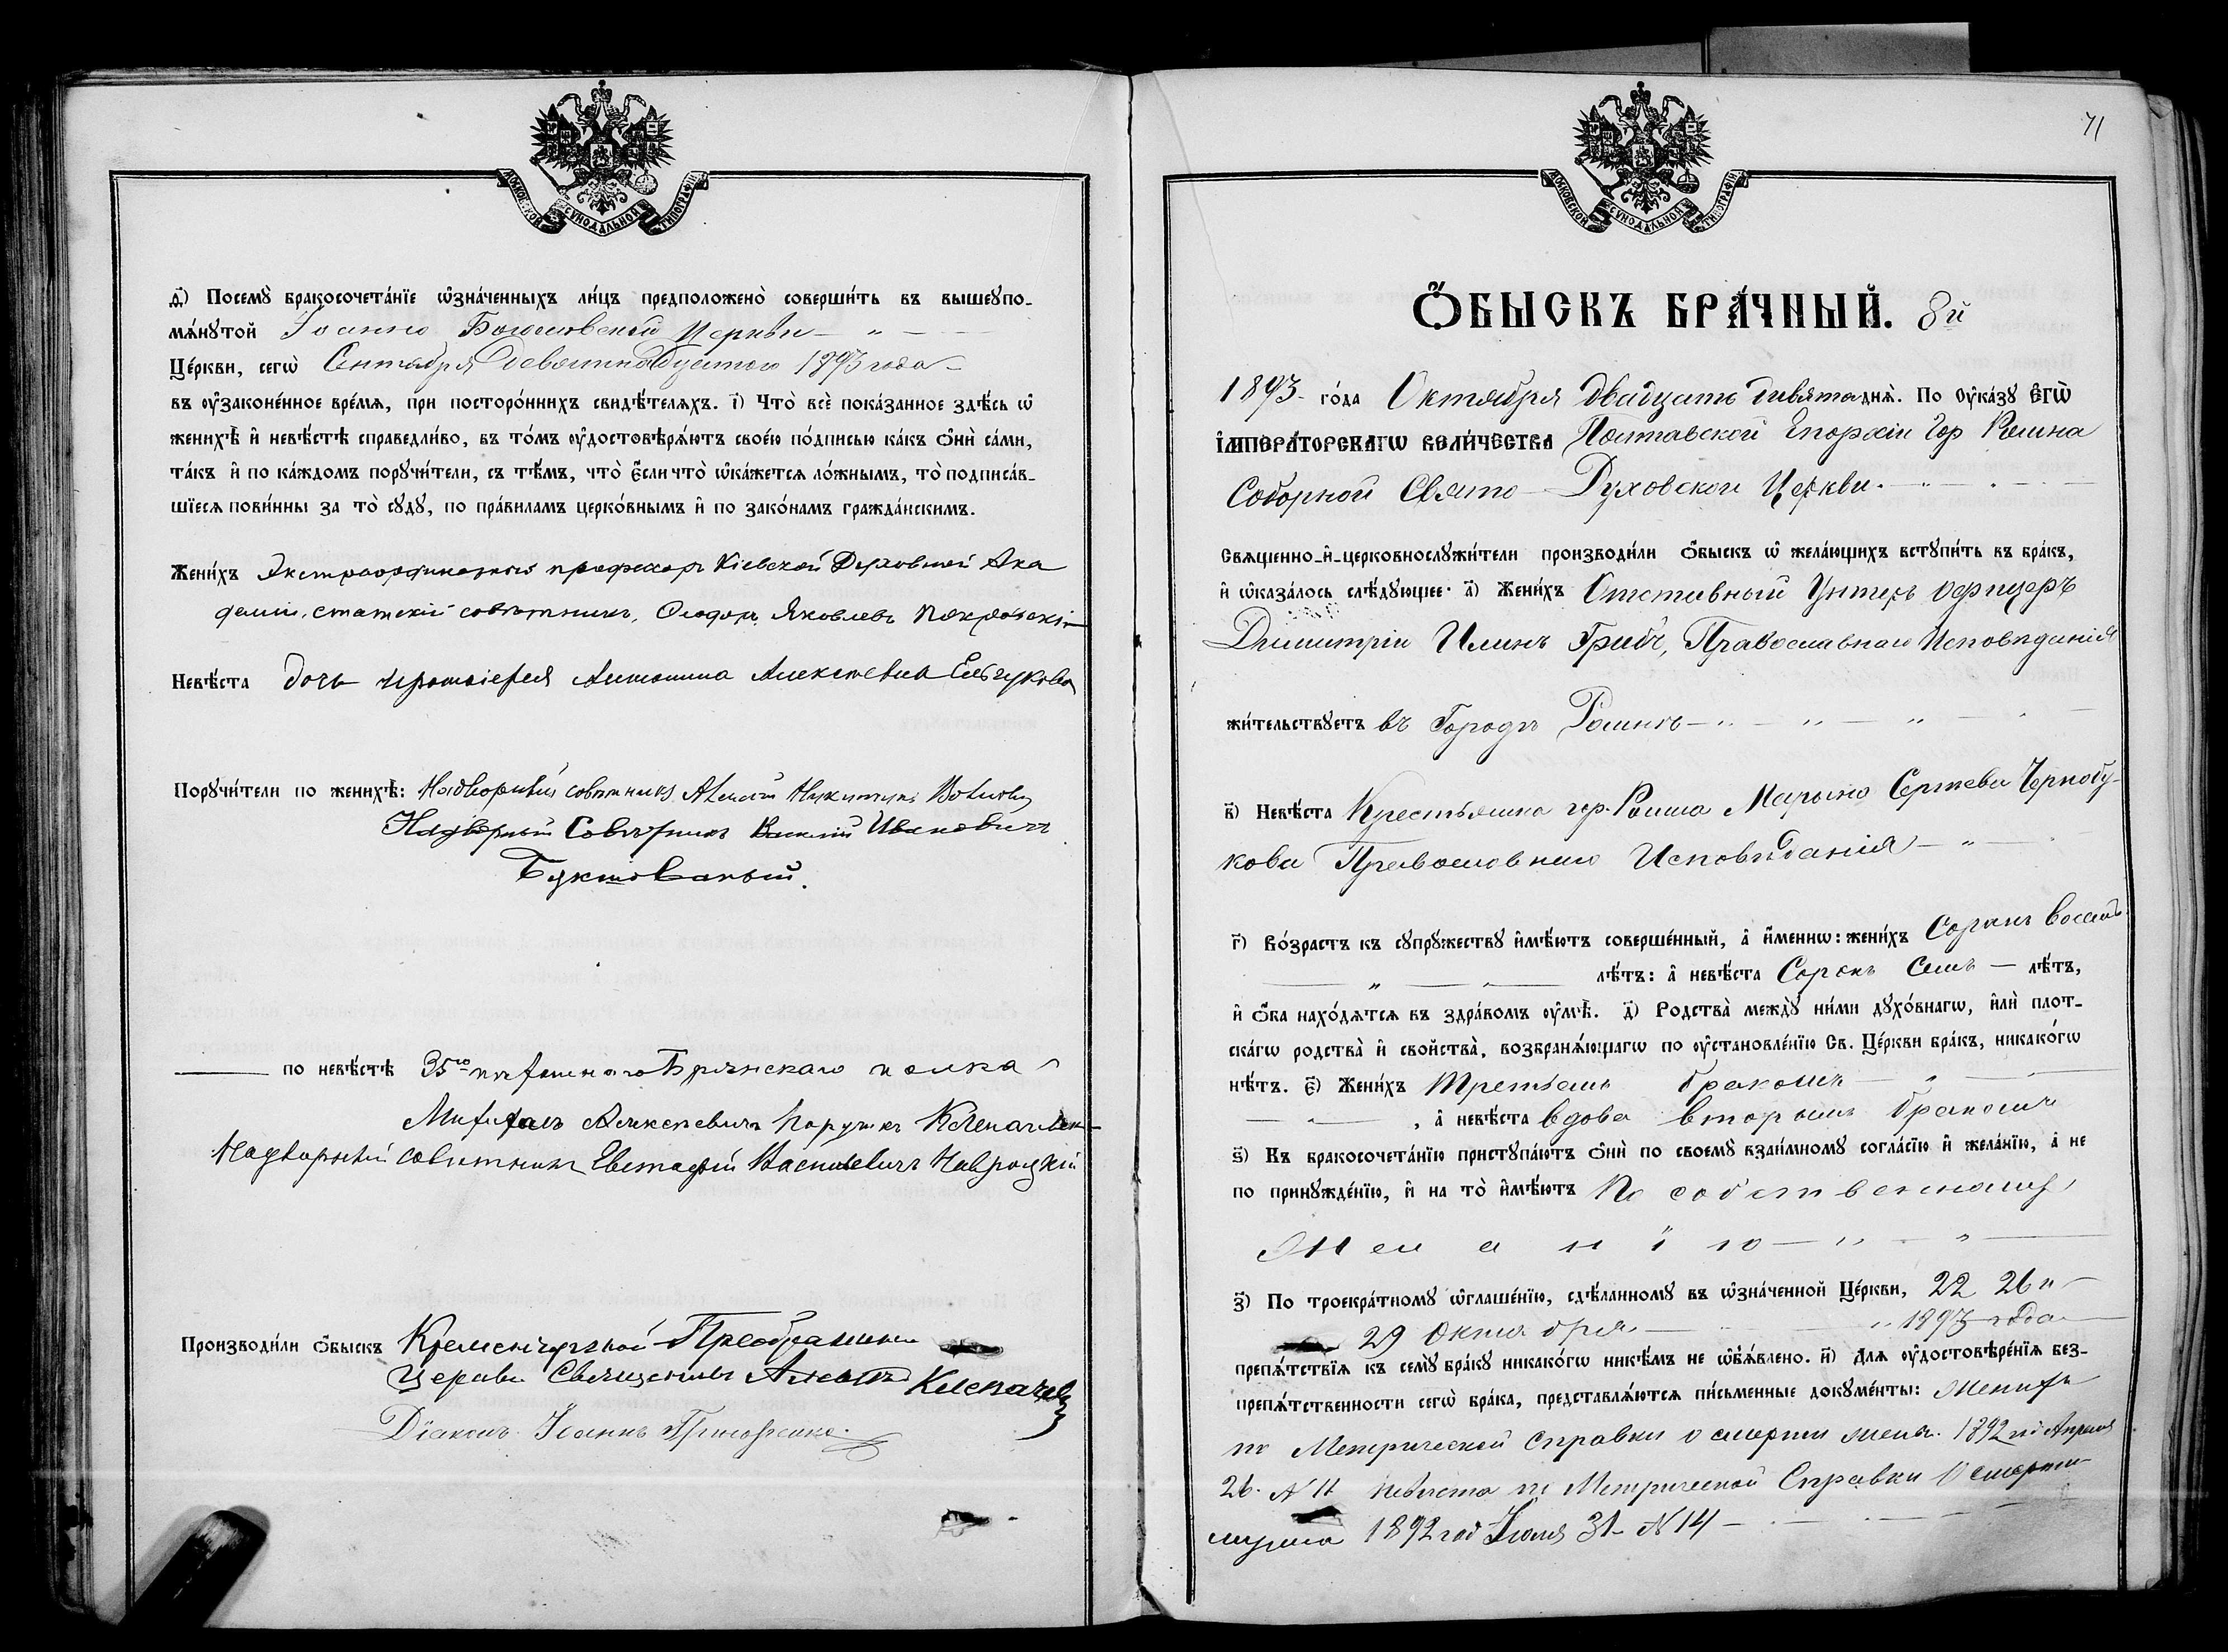 МОСКОВСКОЙ СѴНОДАЛЬНОЙ ТИПОГРАФІИ
д҃) Посемꙋ̀ бракосочета́нїе ѡ҆зна́ченныхъ ли́цъ предположено̀ соверши́ть въ вышеꙋпо-
мѧ́нꙋтой Іоанно Богословской церкви — „ —
Це́ркви, сегѡ̀ Сентября девятнадцатого 1893 года —
въ ᲂу҆законе́нное вре́мѧ, при посторо́ннихъ свидѣ́телѧхъ. і҃) Что̀ всѐ пока́занное здѣ́сь ѡ҆
женихѣ̀ и҆ невѣ́стѣ справедли́во, въ то́мъ ᲂу҆достовѣрѧ́ютъ свое́ю по́дписью ка́къ ѻ҆нѝ са́ми,
та́къ и҆ по ка́ждомъ порꙋчи́тели, съ тѣ́мъ, что̀ є҆́сли что̀ ѡ҆ка́жетсѧ ло́жнымъ, то̀ подписа́в-
шїесѧ пови́нны за то̀ сꙋдꙋ̀, по пра́виламъ церко́внымъ и҆ по зако́намъ гражда́нскимъ.
Жени́хъ Экстраординарный профессоръ Кіевской Духовной Ака
деміи, статскій совѣтникъ, Ѳеодоръ Яковлевъ Покровскій
Невѣ́ста дочь протоіерея Антонина Алексѣевна
Порꙋчи́тели по женихѣ̀: Надворный совѣтникъ Алексѣй Никитичъ
Надворный Совѣтникъ Василій Ивановичъ
— по невѣ́стѣ 35го пѣхотнаго Брянскаго полка
Митрофанъ Алексѣевичъ поручикъ
Надворный совѣтникъ Евстафій Васильевичъ Навроцкій
Производи́ли ѻ҆́быскъ Кременчугской Преображен
церкви Священникъ Алексѣй Клепачевъ
Діаконъ Іоаннъ Григоренко.
71
МОСКОВСКОЙ СѴНОДАЛЬНОЙ ТИПОГРАФІИ
Ѻ҆́БЫСКЪ БРА́ЧНЫЙ. 8й
1893 го́да Октября двадцать девята днѧ̀. По ᲂу҆ка́зꙋ Є҆гѡ̀
І҆мпера́торскагѡ вели́чества Полтавской Епархіи Гор Ромна
Соборной Свято-Духовской Церкви. —
Свѧще́нно-и҆-церковнослꙋжи́тели производи́ли ѻ҆́быскъ ѡ҆ жела́ющихъ встꙋпи́ть въ бра́къ,
и҆ ѡ҆каза́лось слѣ́дꙋющее: а҃) Жени́хъ Отставный Унтеръ офицеръ
Димитрій Илинъ Грибъ, Православнаго Исповѣданія
жи́тельствꙋетъ въ Городѣ Ромнѣ — „ —
в҃) Невѣ́ста Крестьянка гор. Ромна Марина Сергеева Чернобу-
кова Православнаго Исповѣданія — „ —
г҃) Во́зрастъ къ сꙋпрꙋ́жествꙋ и҆мѣ́ютъ соверше́нный, а҆ и҆́меннѡ: жени́хъ Сорокъ восемь
— „ — лѣ́тъ: а҆ невѣ́ста Сорокъ семь — лѣ́тъ,
и҆ ѻ҆́ба нахо́дѧтсѧ въ здра́вомъ ᲂу҆мѣ̀. д҃) Родства̀ междꙋ̀ ни́ми дꙋхо́внагѡ, и҆лѝ плот-
ска́гѡ родства̀ и҆ сво́йства, возбранѧ́ющагѡ по ᲂу҆становле́нїю Св. Це́ркви бра́къ, никако́гѡ
нѣ́тъ. є҃) Жени́хъ третьимъ бракомъ — „ —
— , а҆ невѣ́ста вдова вторымъ бракомъ
ѕ҃) Къ бракосочета́нїю пристꙋпа́ютъ ѻ҆нѝ по своемꙋ̀ взаи́мномꙋ согла́сїю и҆ жела́нїю, а҆ не
по принꙋжде́нїю, и҆ на то̀ и҆мѣ́ютъ По собственному
Желанію — „ — „ —
з҃) По троекра́тномꙋ ѡ҆глаше́нїю, сдѣ́ланномꙋ въ ѡ҆зна́ченной Це́ркви, 22 26 и
29 Октября — „ 1893 года
препѧ́тствїѧ къ семꙋ̀ бра́кꙋ никако́гѡ никѣ́мъ не ѡ҆б̾ѧ́влено. и҃) Длѧ ᲂу҆достовѣре́нїѧ без-
препѧ́тственности сегѡ̀ бра́ка, представлѧ́ютсѧ пи́сьменные докꙋме́нты: Жениха
по Метрической справки о смерти жены. 1892 год Апреля
26. № 11 невѣста по Метрической Справки о смерти
мужа 1892 год Іюля 31 № 14 —